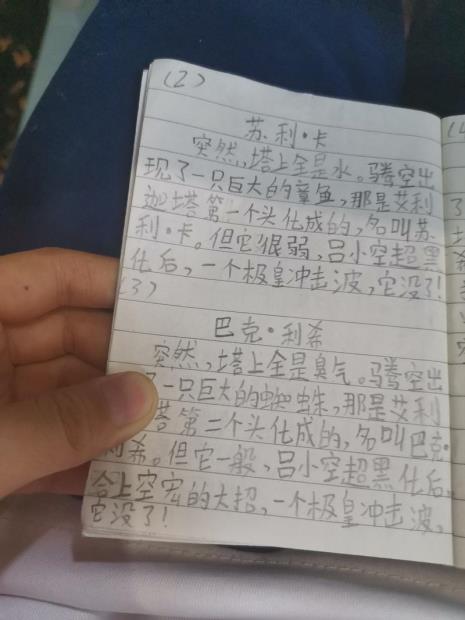 (2)
苏利·卡
突然,塔上全是水。骉空出
现了一只巨大的章鱼,那是艾利
迦塔第一个头化成的,名叫苏
利·卡。但它很弱,吕小空超黑
化后,一个极皇冲击波,它没了!
(3)
巴克·利希
突然,塔上全是臭气。骉空出
了一只巨大的蜘蛛,那是艾利
塔第二个头化成的,名叫巴克·
利希。但它一般,吕小空超黑化后,
合上空宏的大招,一个极皇冲击波,
它没了!